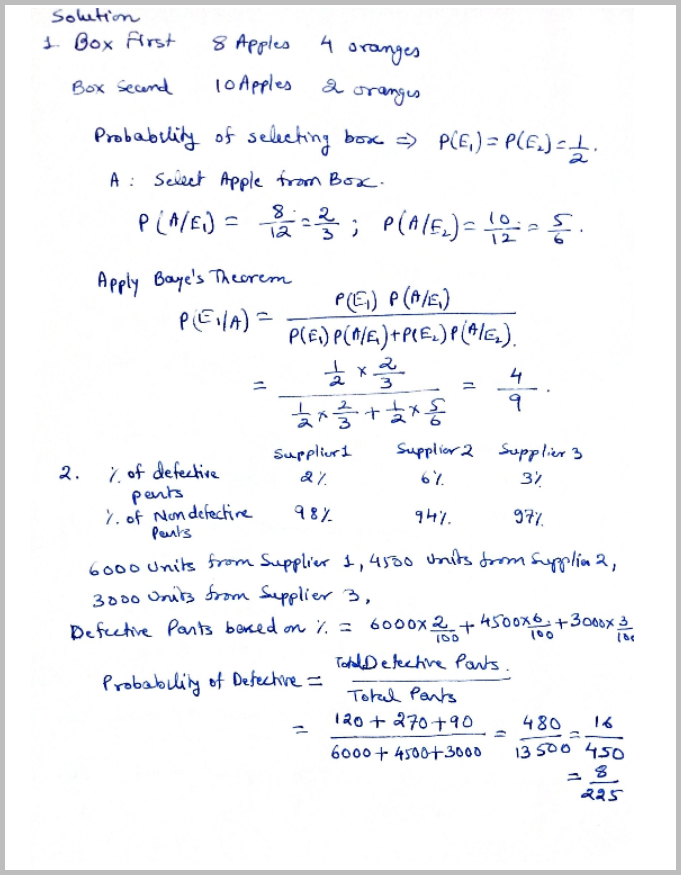 Solution
1. Box First 8 Apples 4 oranges
Box Second 10 Apples 2 oranges
Probability of selecting box ⇒ P(E₁) = P(E₂) = 1/2.
A : Select Apple from Box.
P(A/E₁) = 8/12 = 2/3 ; P(A/E₂) = 10/12 = 5/6.
Apply Baye's Theorem
P(E₁/A) = P(E₁) P(A/E₁) / P(E₁) P(A/E₁) + P(E₂) P(A/E₂).
= 1/2 × 2/3 / 1/2 × 2/3 + 1/2 × 5/6 = 4/9.
Supplier 1 Supplier 2 Supplier 3
2. % of defective 2% 6% 3%
parts
% of Non defective 98% 94% 97%
Parts
6000 Units from Supplier 1, 4500 Units from Supplier 2,
3000 Units from Supplier 3,
Defective Parts based on % = 6000×2/100 + 4500×6/100 + 3000×3/100
Probability of Defective = Total Defective Parts. / Total Parts
= 120 + 270 + 90 / 6000 + 4500 + 3000 = 480/13500 = 16/450
= 8/225